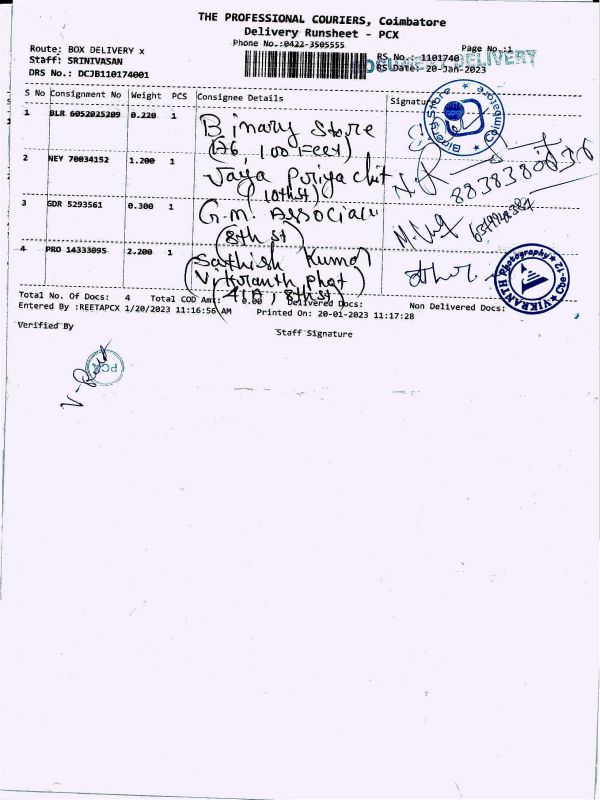 THE PROFESSIONAL COURIERS, Coimbatore
Delivery Runsheet - PCX
Phone No.:0422-3505555
Page No.:1
Route: BOX DELIVERY x
RS No.: 1101740
DELIVERY
Staff: SRINIVASAN
RS Date: 20-Jan-2023
DRS No.: DCJB110174001
S No Consignment No Weight PCS Consignee Details Signature
1 BLR 6052025209 0.220 1 Binary Store
(176, 100 Feet)
Binary Store * Coimbatore *
2 NEY 70034152 1.200 1 Jaya Priya chit
(10th st)
8838380836
3 GDR 5293561 0.300 1 G.M. Associate
(8th st)
4 PRO 14333095 2.200 1 Sathish Kumar
(Vikranth Phot)
41A, 8th st
VIKRANTH Photography * Cbe-12 *
Total No. Of Docs: 4 Total COD Amt: 0.00 Delivered Docs: Non Delivered Docs:
Entered By :REETAPCX 1/20/2023 11:16:56 AM Printed On: 20-01-2023 11:17:28
Verified By Staff Signature
PCX